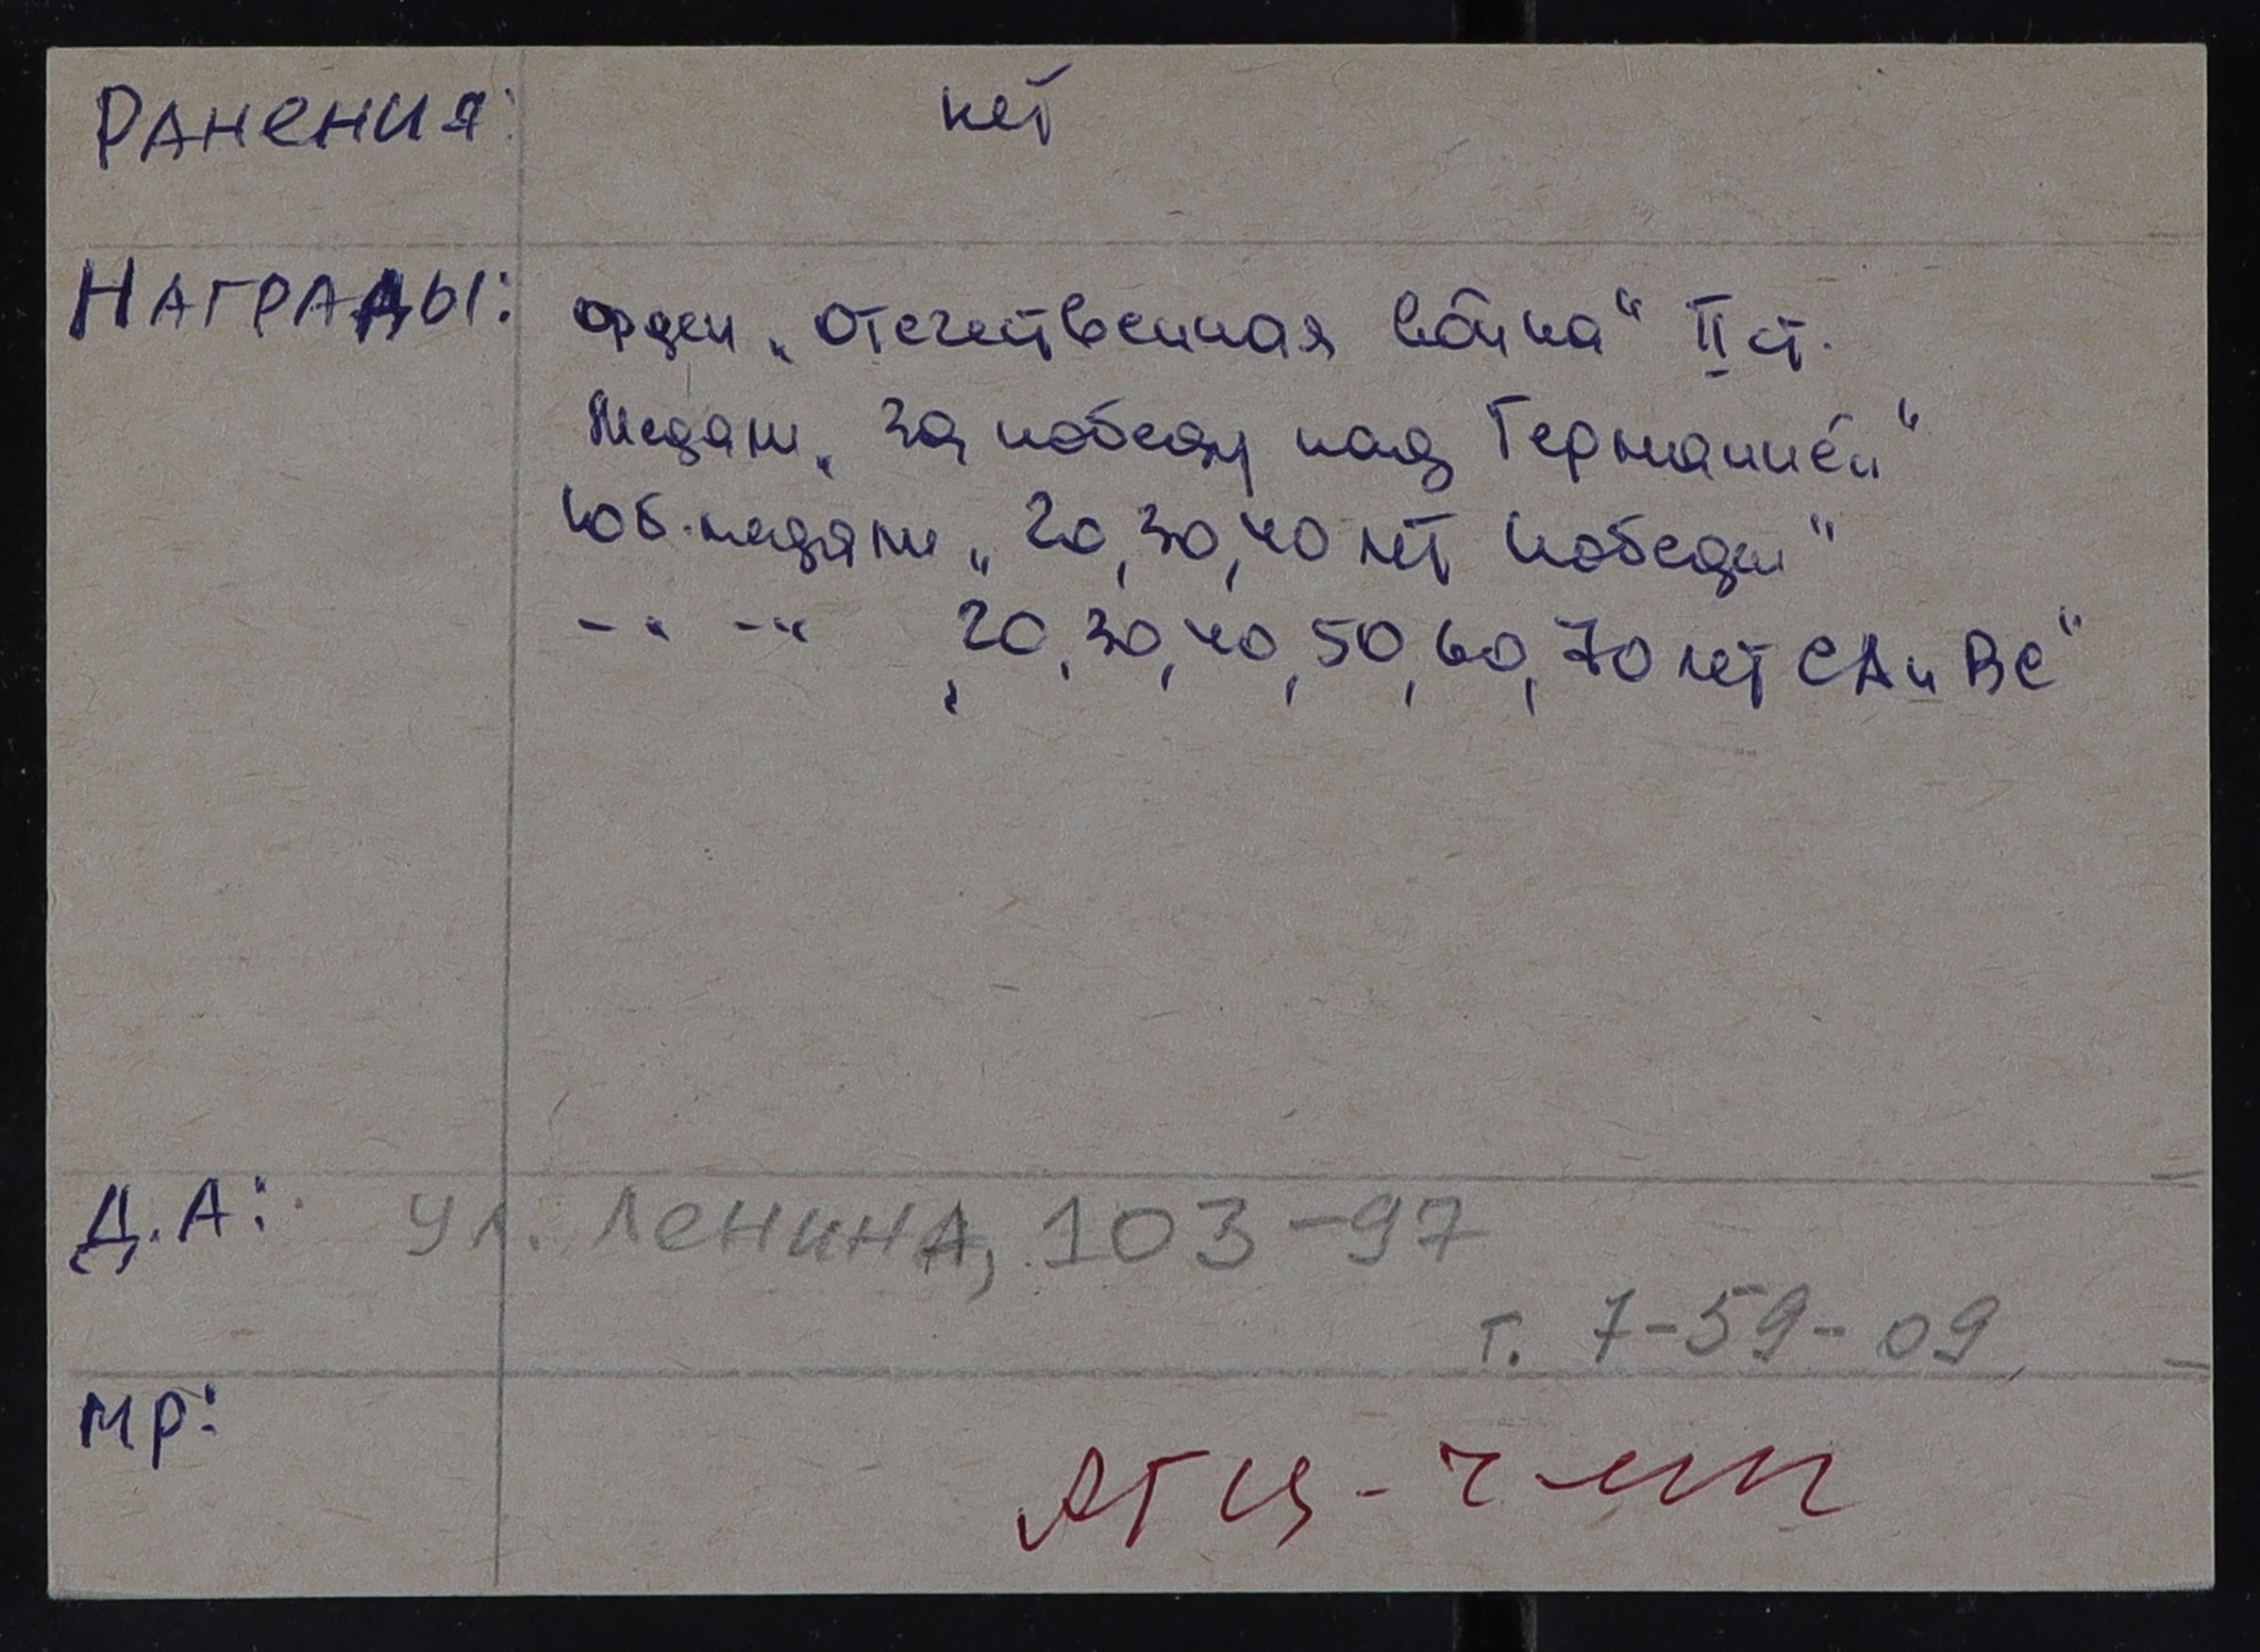 Ранения: нет
Награды: орден „Отечественная война“ II ст.
Медали „За победу над Германией“
Юб. медали „20, 30, 40 лет Победы“
-“- -“- „20, 30, 40, 50, 60, 70 лет СА и ВС“
Д.А: ул. Ленина, 103-97
т. 7-59-09
МР:
АТЦ-ЧМП